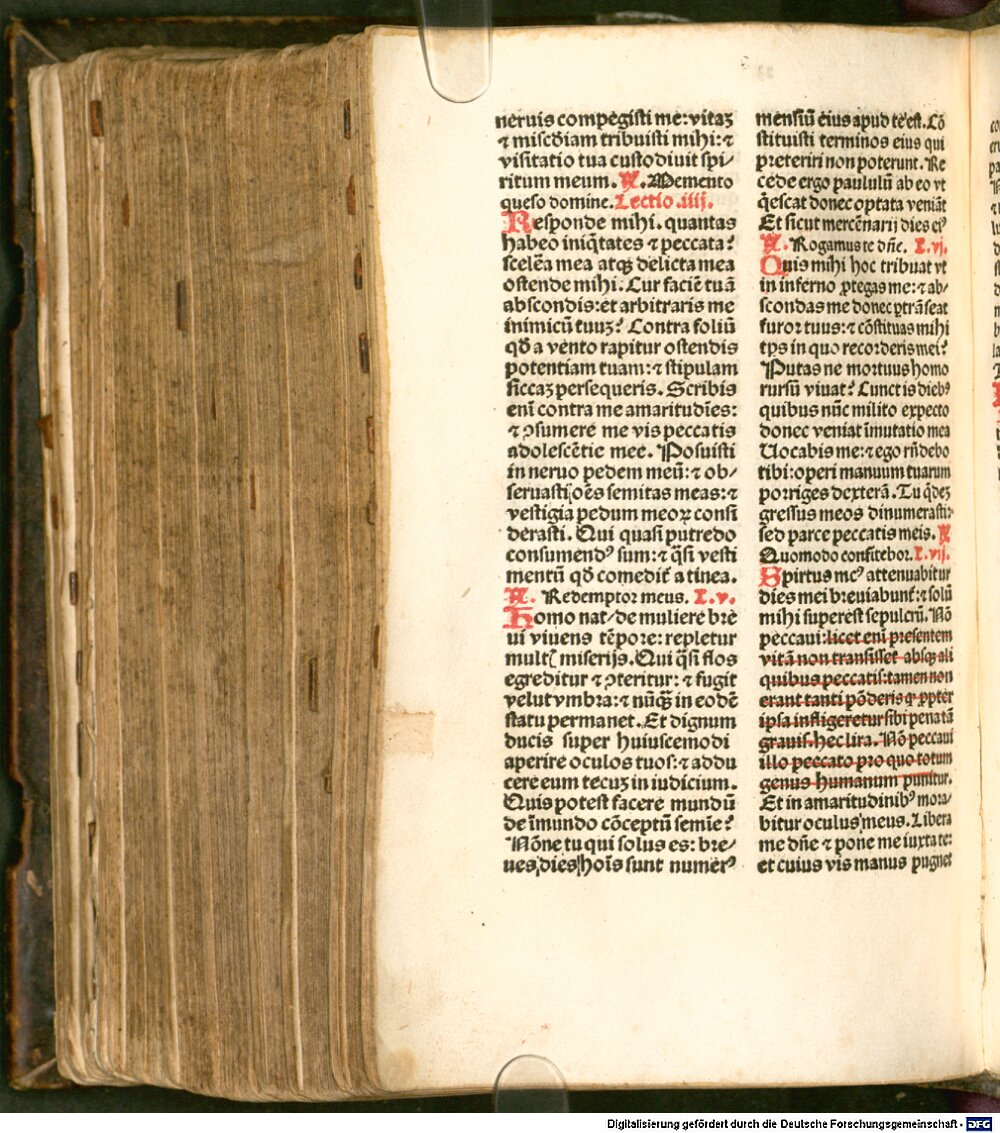 neruis compegisti me: vitaꝫ
⁊ misc̄diam tribuisti mihi: ⁊
visitatio tua custodiuit spi⸗
ritum meum. ℟. Memento
queso domine. Lectio .iiij.
Responde mihi. quantas
habeo iniq̄tates ⁊ peccata?
scelēa mea atqꝫ delicta mea
ostende mihi. Cur faciē tuā
abscondis: et arbitraris me
inimicū tuuꝫ? Contra foliū
qđ a vento rapitur ostendis
potentiam tuam: ⁊ stipulam
siccaꝫ persequeris. Scribis
enī contra me amaritudīes:
⁊ ꝯsumere me vis peccatis
adolescētie mee. Posuisti
in neruo pedem meū: ⁊ ob⸗
seruasti oēs semitas meas: ⁊
vestigia pedum meoꝝ consi
derasti. Qui quasi putredo
consumendꝰ sum: ⁊ q̄si vesti
mentū qđ comedit̄ a tinea.
℟. Redemptor meus. L. v.
Homo nat⸗ de muliere bre
ui viuens tēpore: repletur
mult̄ miserijs. Qui q̄si flos
egreditur ⁊ ꝯteritur: ⁊ fugit
velut vmbra: ⁊ nūq̄ꝫ in eodē
statu permanet. Et dignum
ducis super huiuscemodi
aperire oculos tuos: ⁊ addu
cere eum tecuꝫ in iudicium.
Quis potest facere mundū
de īmundo cōceptū semīe?
Nōne tu qui solus es: bre⸗
ues dies hoīs sunt numerꝰ
mensiū eius apud te est. Cō
stituisti terminos eius qui
preteriri non poterunt. Re
cede ergo paululū ab eo vt
q̄escat donec optata veniāt
Et sicut mercēnarij dies eiꝰ
℟. Rogamus te dn̄e. L. vj.
Quis mihi hoc tribuat vt
in inferno ꝓtegas me: ⁊ ab⸗
scondas me donec ꝑtrāseat
furor tuus: ⁊ cōstituas mihi
tps in quo recorderis mei?
Putas ne mortuus homo
rursū viuat? Cunctis diebꝰ
quibus nūc milito expecto
donec veniat īmutatio mea
Uocabis me: ⁊ ego rn̄debo
tibi: operi manuum tuarum
porriges dexterā. Tu q̄deꝫ
gressus meos dinumerasti:
sed parce peccatis meis. ℟
Quomodo confitebor. L. vij.
Spiritus meꝰ attenuabitur
dies mei breuiabunt̄: ⁊ solū
mihi superest sepulcrū. Nō
peccaui: licet enī presentem
vitā non transisset absqꝫ ali
quibus peccatis: tamen non
erant tanti pōderis ꝙ ꝓpter
ipsa infligeretur sibi pena tā
grauis hec lira. Nō peccaui
illo peccato pro quo totum
genus humanum punitur.
Et in amaritudinibꝰ mora⸗
bitur oculus meus. Libera
me dn̄e ⁊ pone me iuxta te:
et cuius vis manus pugnet
Digitalisierung gefördert durch die Deutsche Forschungsgemeinschaft - DFG